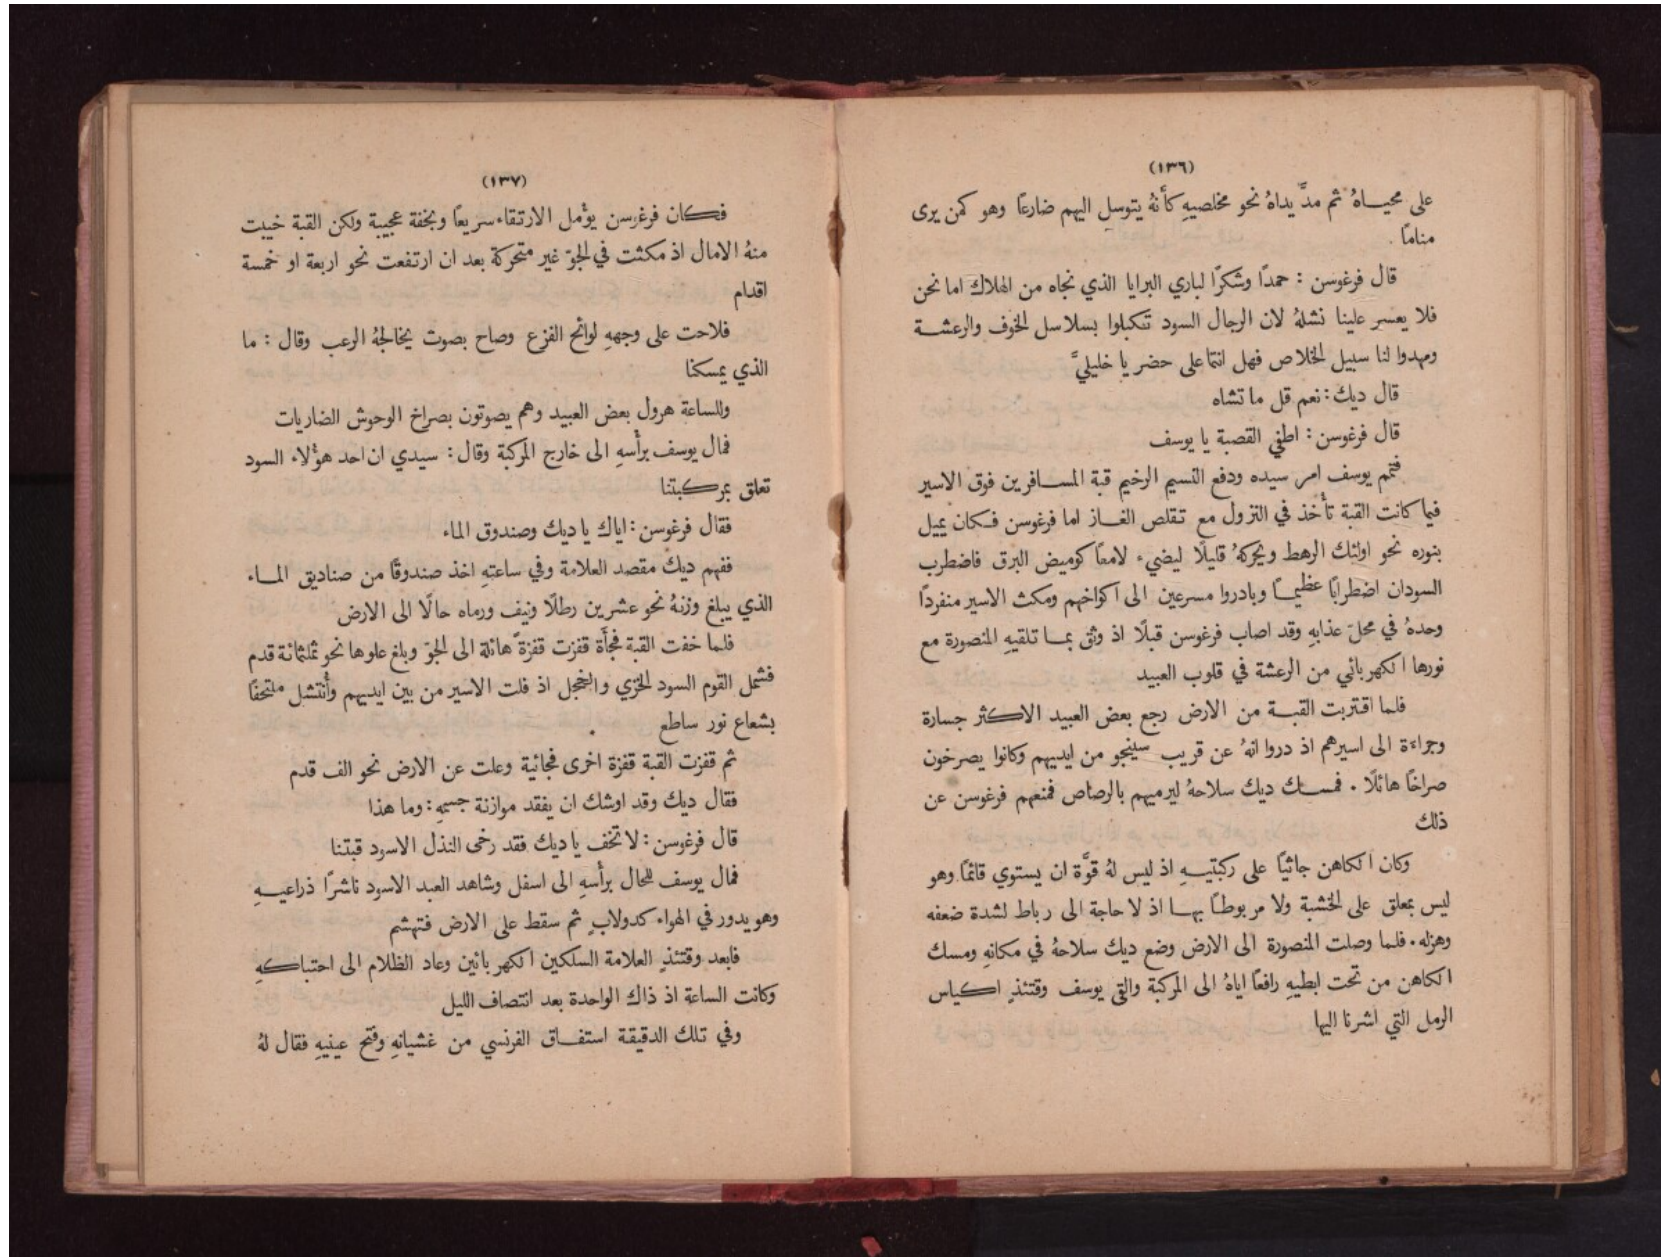 (١٣٦)
على محياهُ ثم مدَّ يداهُ نحو مخلصيهِ كأنهُ يتوسل اليهم ضارعًا وهو كمن يرى
منامًا .
قال فرغوسن : حمدًا وشكرًا لباري البرايا الذي نجاه من الهلاك اما نحن
فلا يعسر علينا نشلهُ لان الرجال السود تكبلوا بسلاسل الخوف والرعشة
ومهدوا لنا سبيل الخلاص فهل انتما على حضر يا خليليَّ
قال ديك : نعم قل ما تشاه
قال فرغوسن : اطفي القصبة يا يوسف
فتمم يوسف امر سيده ودفع النسيم الرخيم قبة المسافرين فوق الاسير
فيما كانت القبة تأخذ في النزول مع تقلص الغاز اما فرغوسن فكان يميل
بنوره نحو اولئك الرهط ويحركهُ قليلًا ليضيء لامعًا كوميض البرق فاضطرب
السودان اضطرابًا عظيمًا وبادروا مسرعين الى اكواخهم ومكث الاسير منفردًا
وحدهُ في محلّ عذابهِ وقد اصاب فرغوسن قبلًا اذ وثق بما تلقيهِ المنصورة مع
نورها الكهربائي من الرعشة في قلوب العبيد
فلما اقتربت القبة من الارض رجع بعض العبيد الاكثر جسارة
وجراءة الى اسيرهم اذ دروا انهُ عن قريب سينجو من ايديهم وكانوا يصرخون
صراخًا هائلًا . فمسك ديك سلاحهُ ليرميهم بالرصاص فمنعهم فرغوسن عن
ذلك
وكان الكاهن جاثيًا على ركبتيهِ اذ ليس لهُ قوَّة ان يستوي قائمًا وهو
ليس بمعلق على الخشبة ولا مربوطًا بها اذ لا حاجة الى رباط لشدة ضعفه
وهزله . فلما وصلت المنصورة الى الارض وضع ديك سلاحهُ في مكانهِ ومسك
الكاهن من تحت ابطيهِ رافعًا اياهُ الى المركبة والقى يوسف وقتئذٍ اكياس
الرمل التي اشرنا اليها
(١٣٧)
فكان فرغوسن يؤمل الارتقاء سريعًا وبخفة عجيبة ولكن القبة خيبت
منهُ الامال اذ مكثت في الجوّ غير متحركة بعد ان ارتفعت نحو اربعة او خمسة
اقدام
فلاحت على وجههِ لوائح الفزع وصاح بصوت يخالجهُ الرعب وقال : ما
الذي يمسكنا
وللساعة هرول بعض العبيد وهم يصوتون بصراخ الوحوش الضاريات
فمال يوسف برأسهِ الى خارج المركبة وقال : سيدي ان احد هؤلاء السود
تعلق بمركبتنا
فقال فرغوسن : اياك يا ديك وصندوق الماء
ففهم ديك مقصد العلامة وفي ساعتهِ اخذ صندوقًا من صناديق الماء
الذي يبلغ وزنهُ نحو عشرين رطلًا ونيف ورماه حالًا الى الارض
فلما خفت القبة فجأَة قفزت قفزةً هائلة الى الجوّ وبلغ علوها نحو ثلثمائة قدم
فشمل القوم السود الخزي والخجل اذ فلت الاسير من بين ايديهم وأُنتشل ملتحفًا
بشعاع نور ساطع
ثم قفزت القبة قفزة اخرى فجائية وعلت عن الارض نحو الف قدم
فقال ديك وقد اوشك ان يفقد موازنة جسمهِ : وما هذا
قال فرغوسن : لا تخف يا ديك فقد رخى النذل الاسود قبتنا
فمال يوسف للحال برأسهِ الى اسفل وشاهد العبد الاسود ناشرًا ذراعيهِ
وهو يدور في الهواء كدولابٍ ثم سقط على الارض فتهشم
فابعد وقتئذٍ العلامة السلكين الكهربائين وعاد الظلام الى احتباكهِ
وكانت الساعة اذ ذاك الواحدة بعد انتصاف الليل
وفي تلك الدقيقة استفاق الفرنسي من غشيانهِ وفتح عينيهِ فقال لهُ